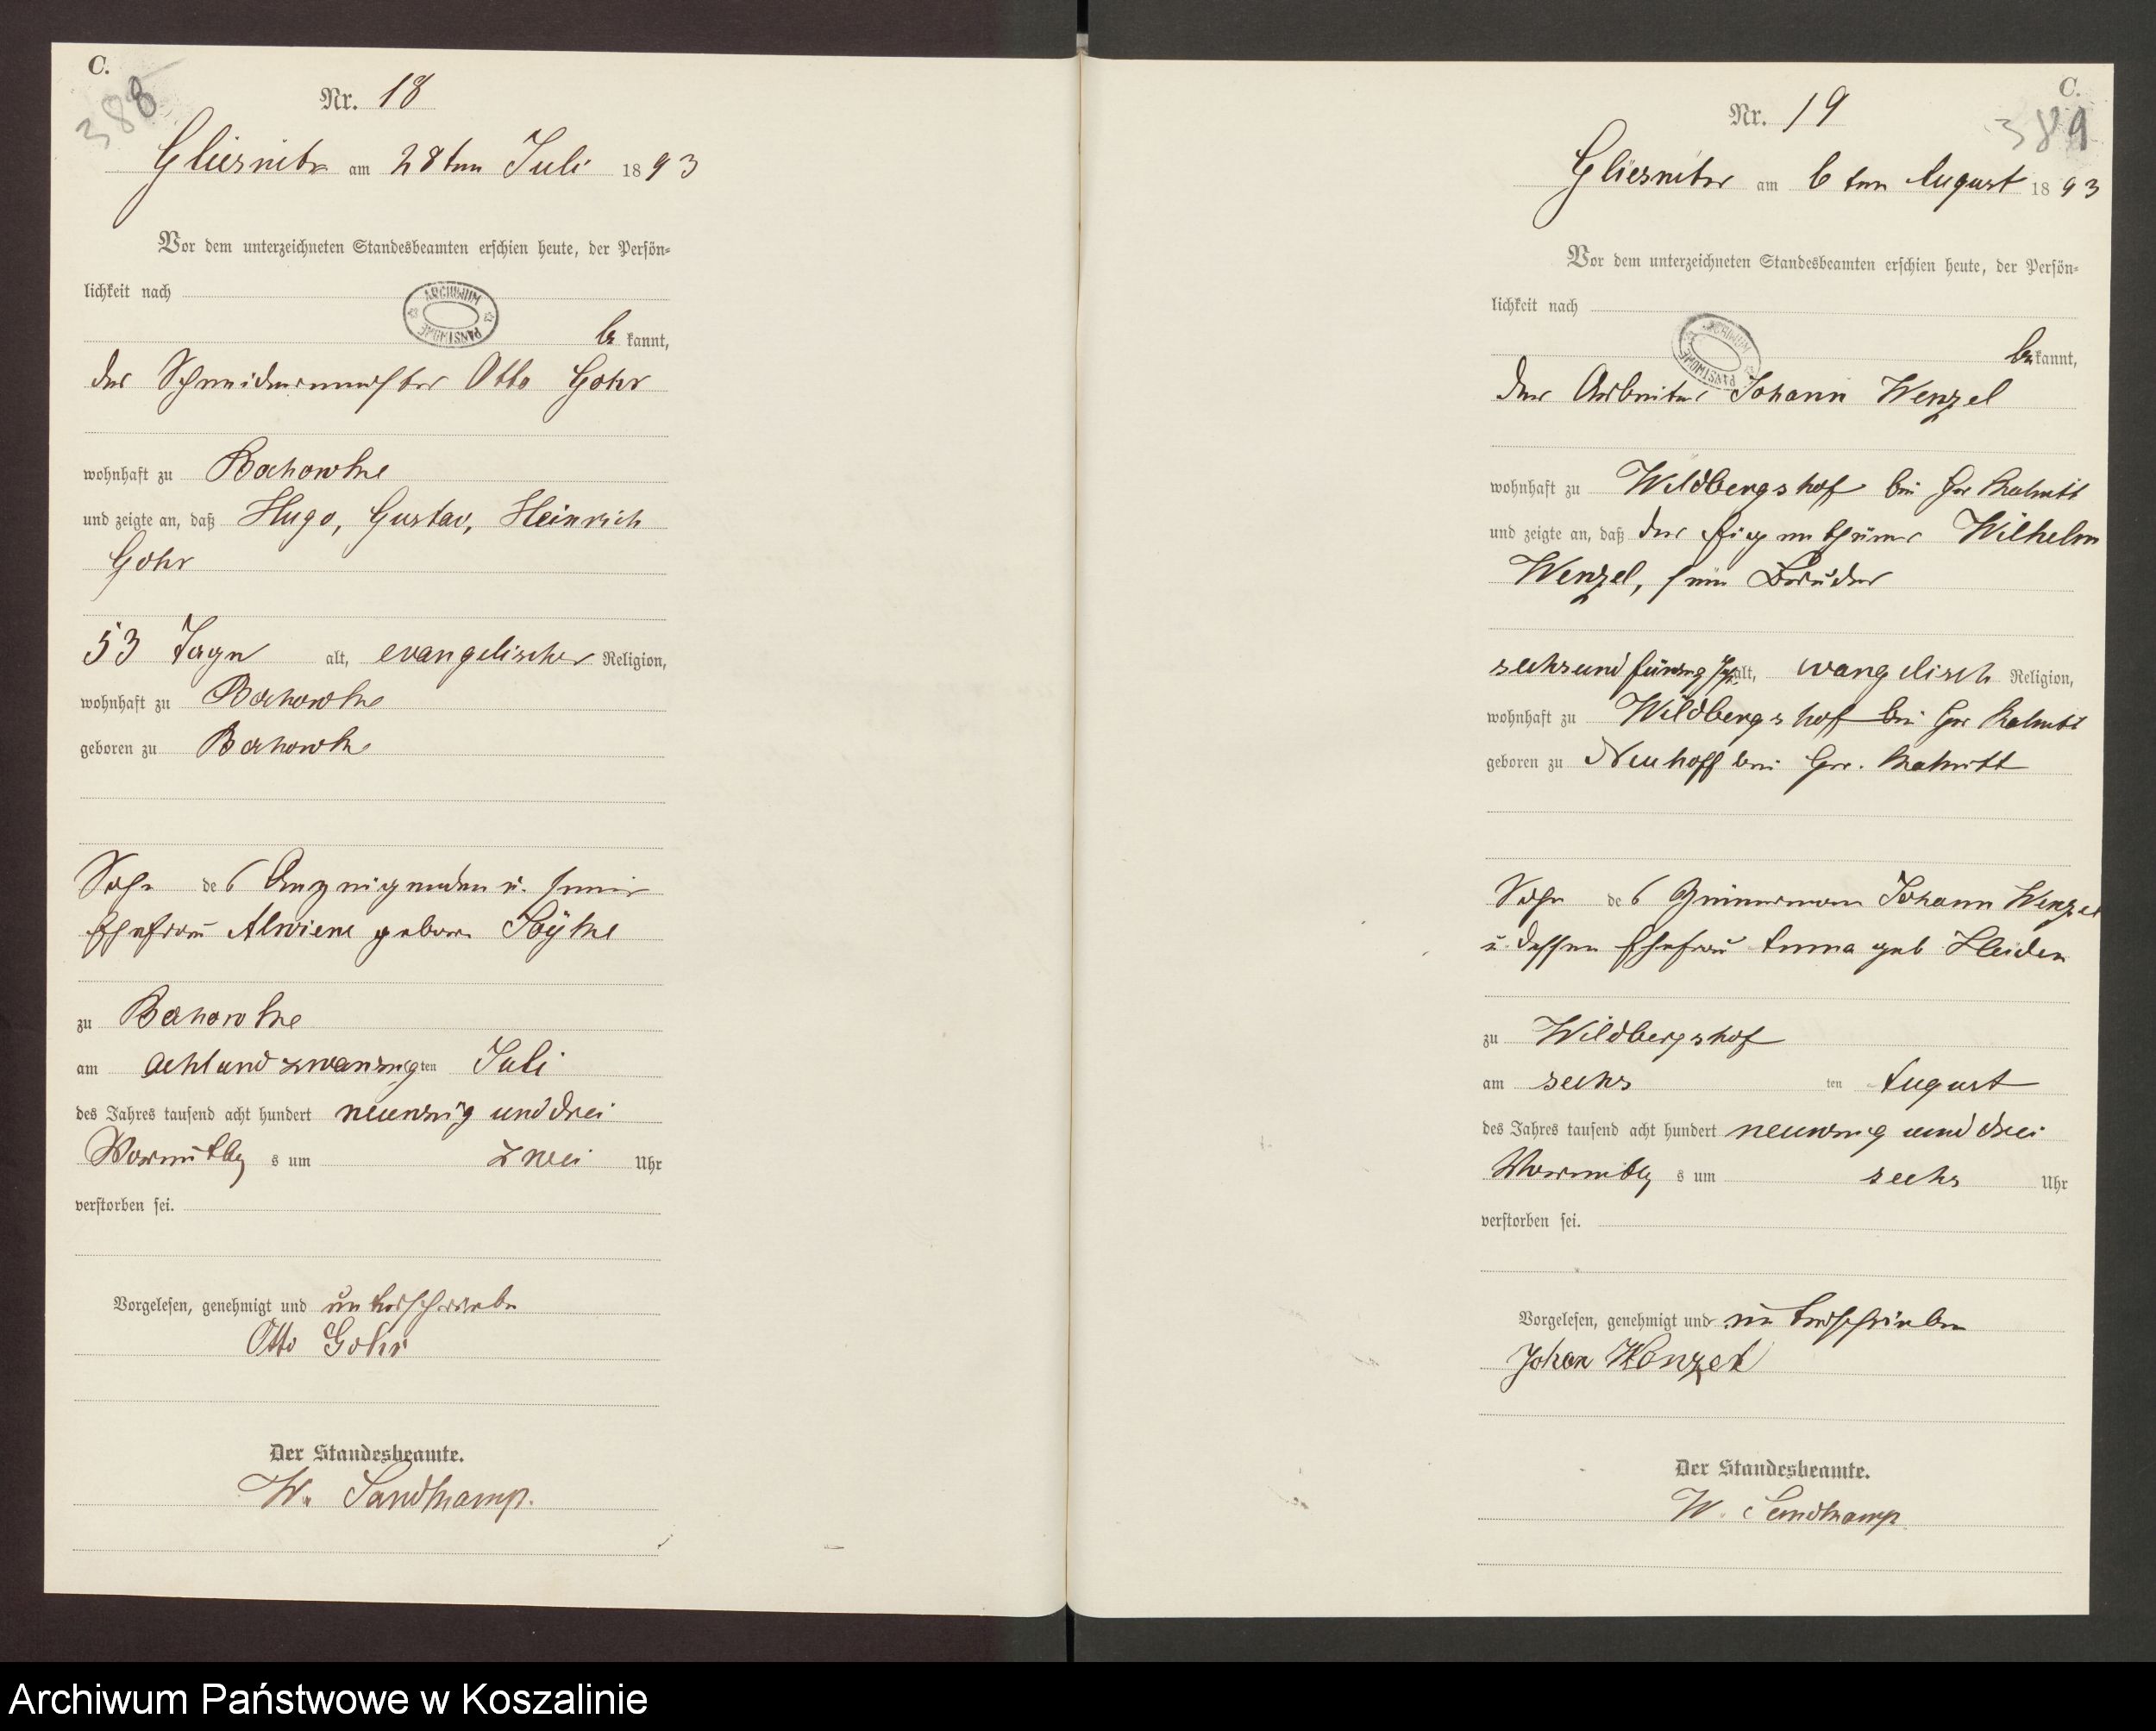 C.
388
Nr. 18
Gliesnitz am 28ten Juli 1893
Vor dem unterzeichneten Standesbeamten erschien heute, der Persön=
lichkeit nach
ARCHIWUM PAŃSTWOWE
be kannt,
der Schneidermeister Otto Gohr
wohnhaft zu Bochowke
und zeigte an, daß Hugo, Gustav, Heinrich
Gohr
53 Tage alt, evangelischer Religion,
wohnhaft zu Bochowke
geboren zu Bochowke
Sohn des Anzeigenden u. seiner
Ehefrau Alwiene geboren
zu Bochowke
am achtundzwanzigten Juli
des Jahres tausend acht hundert neunzig und drei
Vormittags um zwei Uhr
verstorben sei.
Vorgelesen, genehmigt und unterschrieben
Otto Gohr
Der Standesbeamte.
W. Sandkamp.
C.
389
Nr. 19
Gliesnitz am 6ten August 1893
Vor dem unterzeichneten Standesbeamten erschien heute, der Persön=
lichkeit nach
ARCHIWUM PAŃSTWOWE
be kannt,
der Arbeiter Johann Wenzel
wohnhaft zu Wildbergshof bei Gr Rakitt
und zeigte an, daß der Eigenthümer Wilhelm
Wenzel, sein Bruder
sechsund alt, evangelisch Religion,
wohnhaft zu Wildbergshof bei Gr Rakitt
geboren zu Neuhoff bei Gr. Rakitt
Sohn des Johann Wenzel
u. dessen Ehefrau Anna geb Heiden
zu Wildbergshof
am sechs ten August
des Jahres tausend acht hundert neunzig und drei
Vormittags um sechs Uhr
verstorben sei.
Vorgelesen, genehmigt und unterschrieben
Johan Wenzel
Der Standesbeamte.
W. Sandkamp
Archiwum Państwowe w Koszalinie